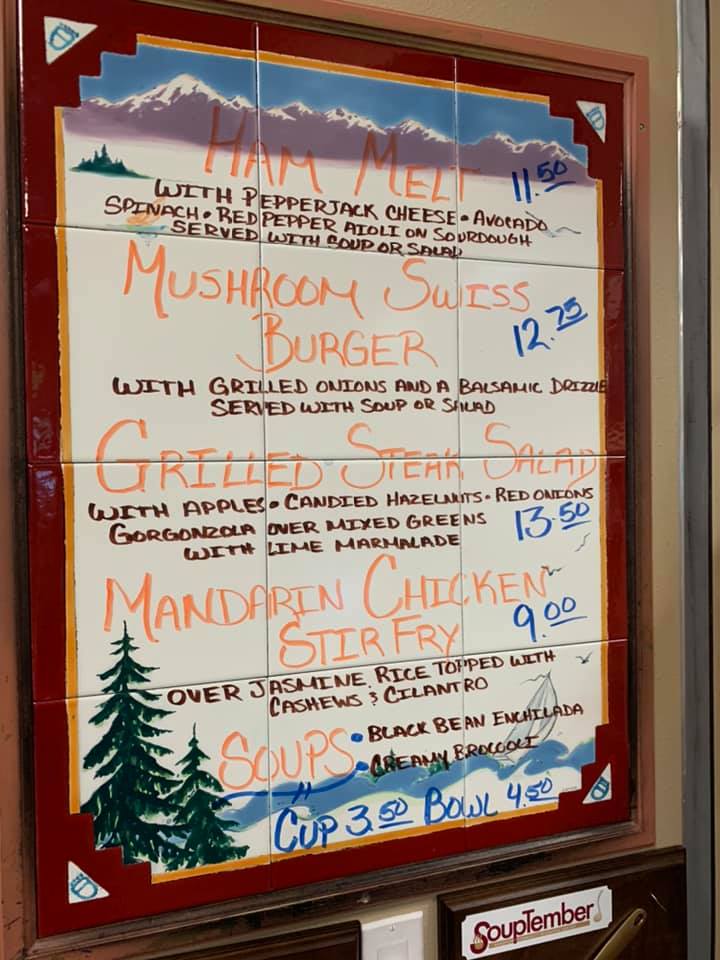 HAM MELT 11.50
WITH PEPPERJACK CHEESE • AVOCADO
SPINACH • RED PEPPER AIOLI ON SOURDOUGH
SERVED WITH SOUP OR SALAD
MUSHROOM SWISS
BURGER 12.75
WITH GRILLED ONIONS AND A BALSAMIC DRIZZLE
SERVED WITH SOUP OR SALAD
GRILLED STEAK SALAD
WITH APPLES • CANDIED HAZELNUTS • RED ONIONS
GORGONZOLA OVER MIXED GREENS 13.50
WITH LIME MARMALADE
MANDARIN CHICKEN
STIR FRY 9.00
OVER JASMINE RICE TOPPED WITH
CASHEWS & CILANTRO
SOUPS • BLACK BEAN ENCHILADA
• CREAMY BROCCOLI
CUP 3.50 BOWL 4.50
SoupTember